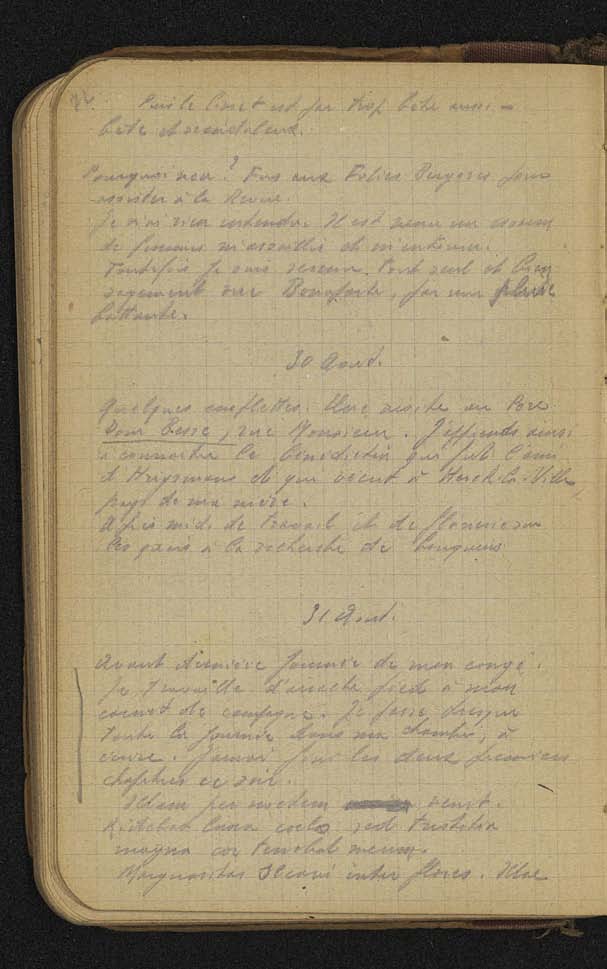 Puis le Ciné est par trop bête aussi -
bête et scandaleux.
Pourquoi non ? Fus aux Folies Bergères pour
assister à la Revue.
Je n'ai rien entendu. Il est venu un essaim
de femmes m'assaillir et m'
Toutefois je suis revenu tout seul et bien
sagement rue Bonaparte, par une pluie
battante.
30 Août.
Quelques emplettes. Une visite au Père
Dom Besse, rue Monsieur. J'apprends ainsi
à connaître le bénédictin qui fut l'ami
d'Huysmans et qui vécut à ville,
pays de ma mère.
Après midi de travail et de flânerie sur
les quais à la recherche de bouquins
31 Août.
Avant dernière journée de mon congé.
Je travaille d'arrache pied à mon
carnet de campagne. Je passe presque
toute la journée dans ma chambre, à
écrire. J'aurai fini les deux premiers
chapitres ce soir.
per noctem venit.
Ridebat luna coelo, sed tristitia
magna cor tenebat meum.
Margaritas inter flores. Illae